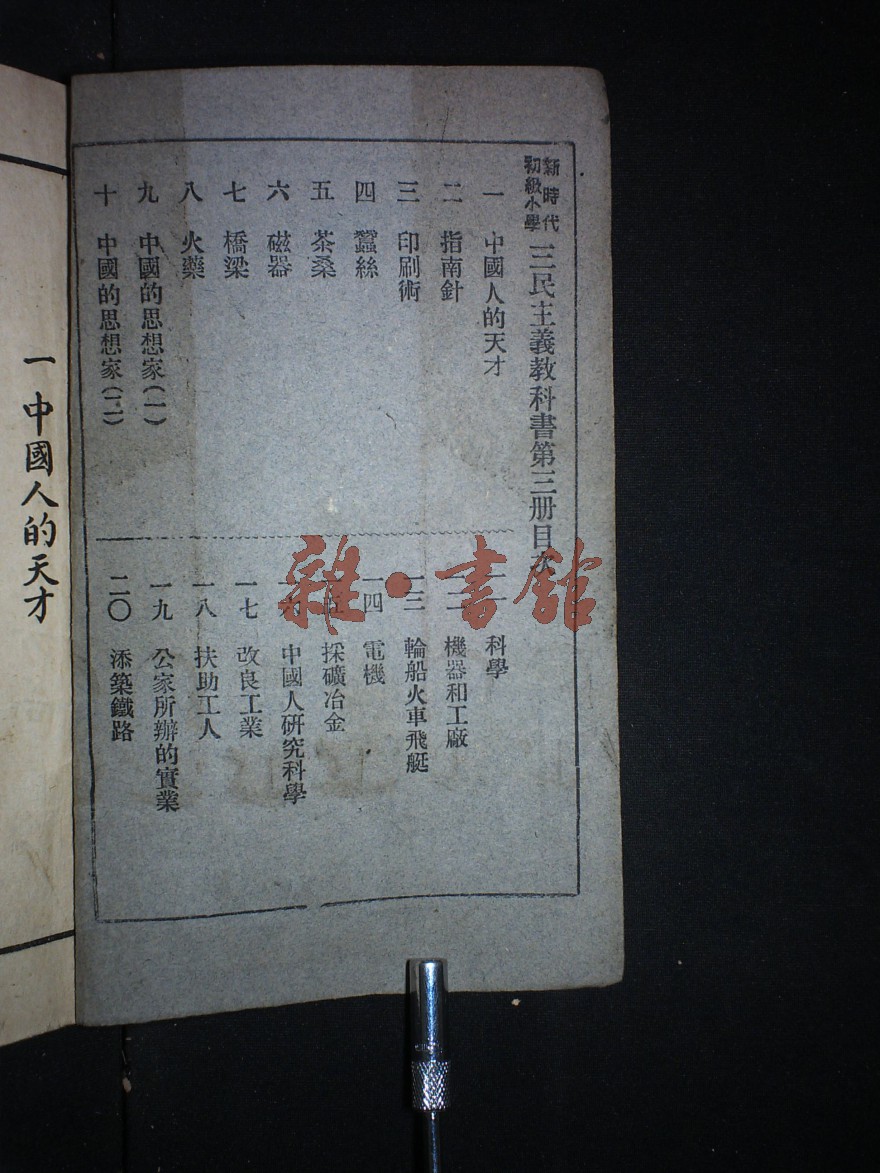 新時代
初級小學
三民主義教科書第三册目次
一 中國人的天才
二 指南針
三 印刷術
四 蠶絲
五 茶桑
六 磁器
七 橋梁
八 火藥
九 中國的思想家(一)
十 中國的思想家(二)
一一 科學
一二 機器和工廠
一三 輪船火車飛艇
一四 電機
一五 採礦冶金
一六 中國人研究科學
一七 改良工業
一八 扶助工人
一九 公家所辦的實業
二〇 添築鐵路
一 中國人的天才
雜·書館